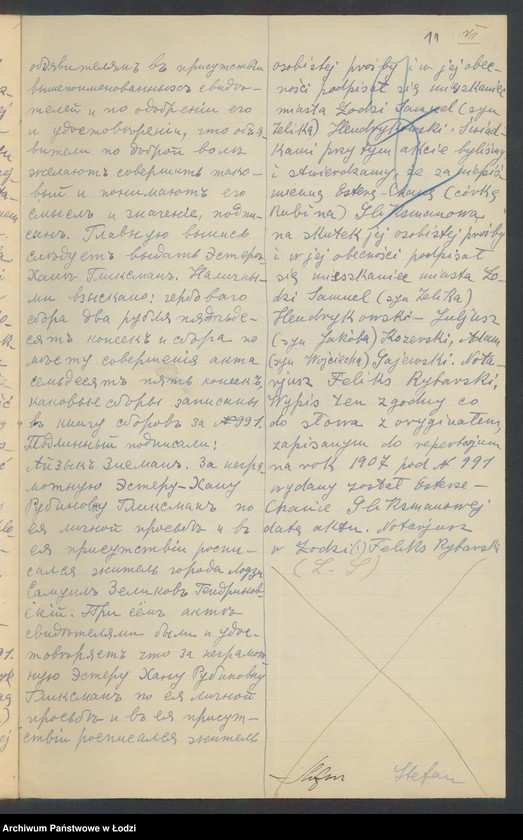 11 VII
объявителямъ въ присутствіи
вышепоименованныхъ свидѣ-
телей и по одобреніи его
и удостовѣреніи, что объя-
вители по доброй волѣ
желаютъ совершить тако-
вый и понимаютъ его
смыслъ и значеніе, подпи-
санъ. Главную выпись
слѣдуетъ выдать Эстерѣ-
Ханѣ Гликсманъ. Наличны-
ми взыскано: гербоваго
сбора два рубля пядьде-
сятъ копеекъ и сбора по
мѣсту совершенія акта
семьдесятъ пять копеекъ,
каковые сборы записаны
въ книгу сборовъ за № 991.
Подлинный подписали:
Айзыкъ Зисманъ. За негра-
мотную Эстеру-Хану
Рубиновну Гликсманъ по
ея личной просьбѣ и въ
ея присутствіи роспи-
сался житель города Лодзи
Самуилъ Зеликовъ Гендриков-
скій. При семъ актѣ
свидѣтелями были и удос-
товѣряетъ что за неграмот-
ную Эстеру Хану Рубиновну
Гликсманъ по ея личной
просьбѣ и въ ея присут-
ствіи росписался житель
osobistej prośby i w jej obec-
ności podpisał się mieszkaniec
miasta Łodzi Samuel (syn
Zelika) Hendrykowski. Świad-
kami przy tym akcie byliśmy
i stwierdzamy, że za niepiś-
mienną Esterę-Chanę (córkę
Rubina) Gliksmanową
na skutek jej osobistej prośby
i w jej obecności podpisał
się mieszkaniec miasta Ło-
dzi Samuel (syn Zelika)
Hendrykowski – Juljusz
(syn Jakóba) Kozerski, Adam
(syn Wojciecha) Gajewski. Nota-
rjusz Feliks Rybarski.
Wypis ten zgodny co
do słowa z oryginałem,
zapisanym do repertorjum
na rok 1907 pod № 991
wydany został Esterze-
Chanie Gliksmanowej
datą aktu. Notarjusz
w Łodzi (-) Feliks Rybarski
(L. S)
Stefan
Archiwum Państwowe w Łodzi